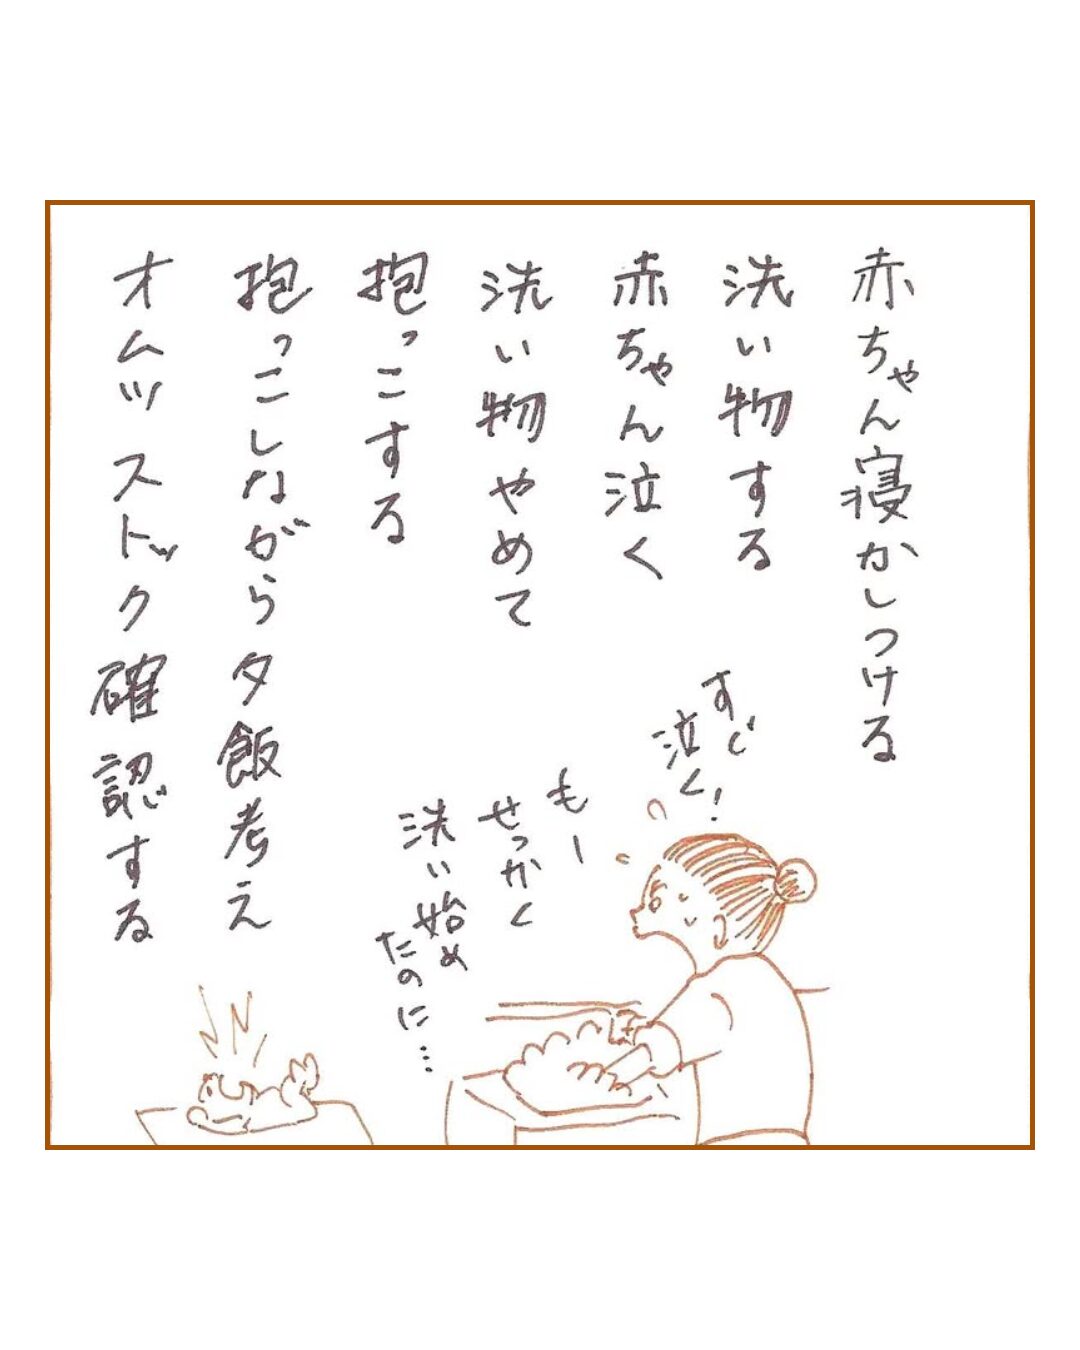 赤ちゃん寝かしつける
洗い物する
赤ちゃん泣く
洗い物やめて
抱っこする
抱っこしながら夕飯考え
オムツストック確認する
すぐ
泣く!
もー
せっかく
洗い始め
たのに…